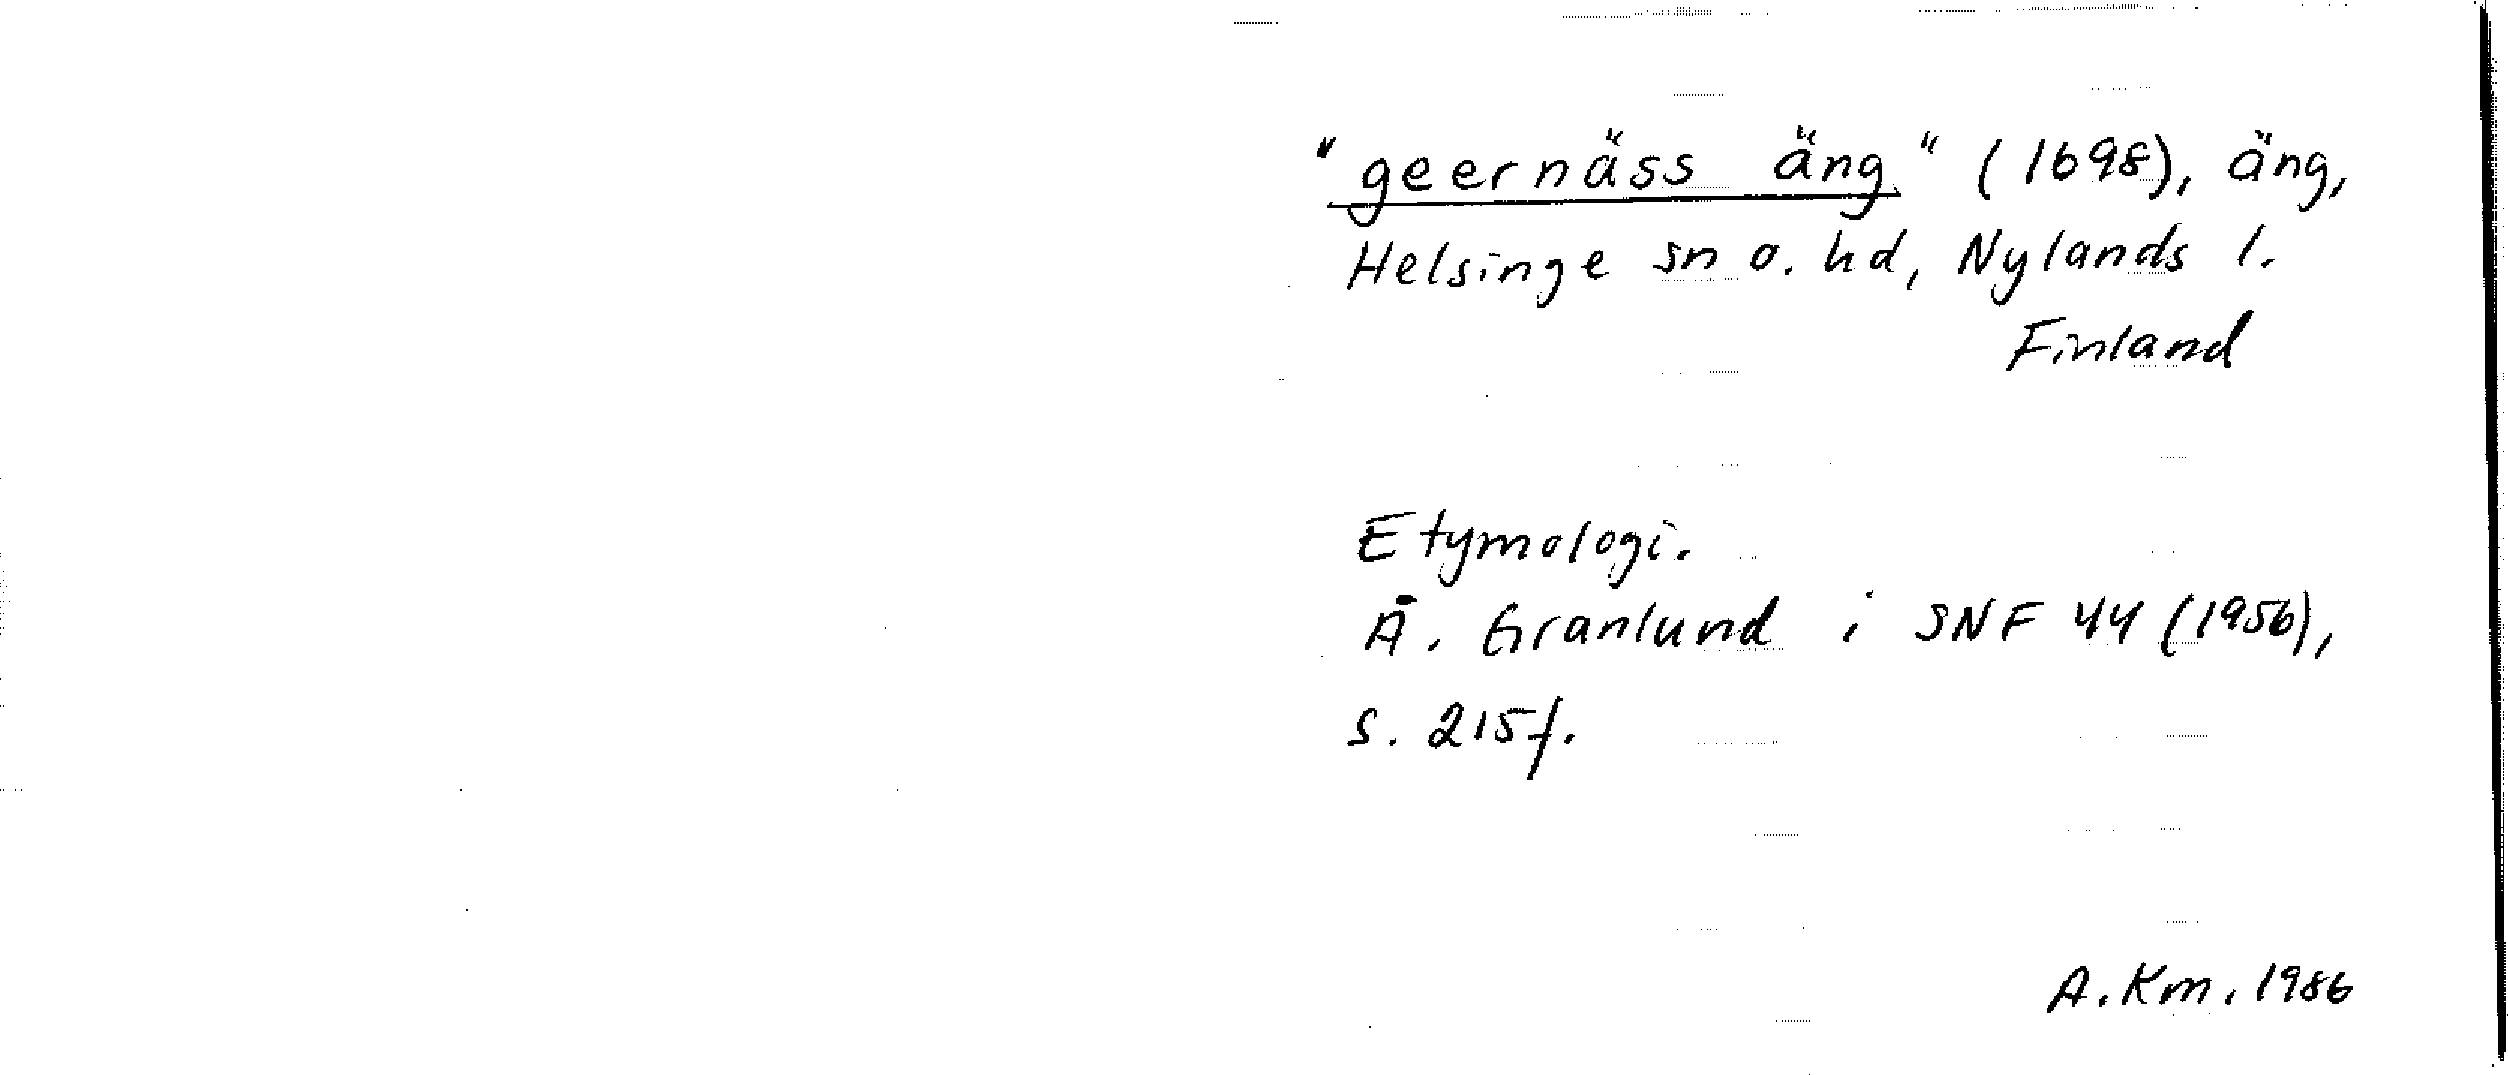 "geernäss äng" (1698), äng,
Helsinge sn o. hd, Nylands l.
Finland
Etymologi.
Å. Granlund i SNF 44 (1956),
s. 215f.
A.Km. 1986